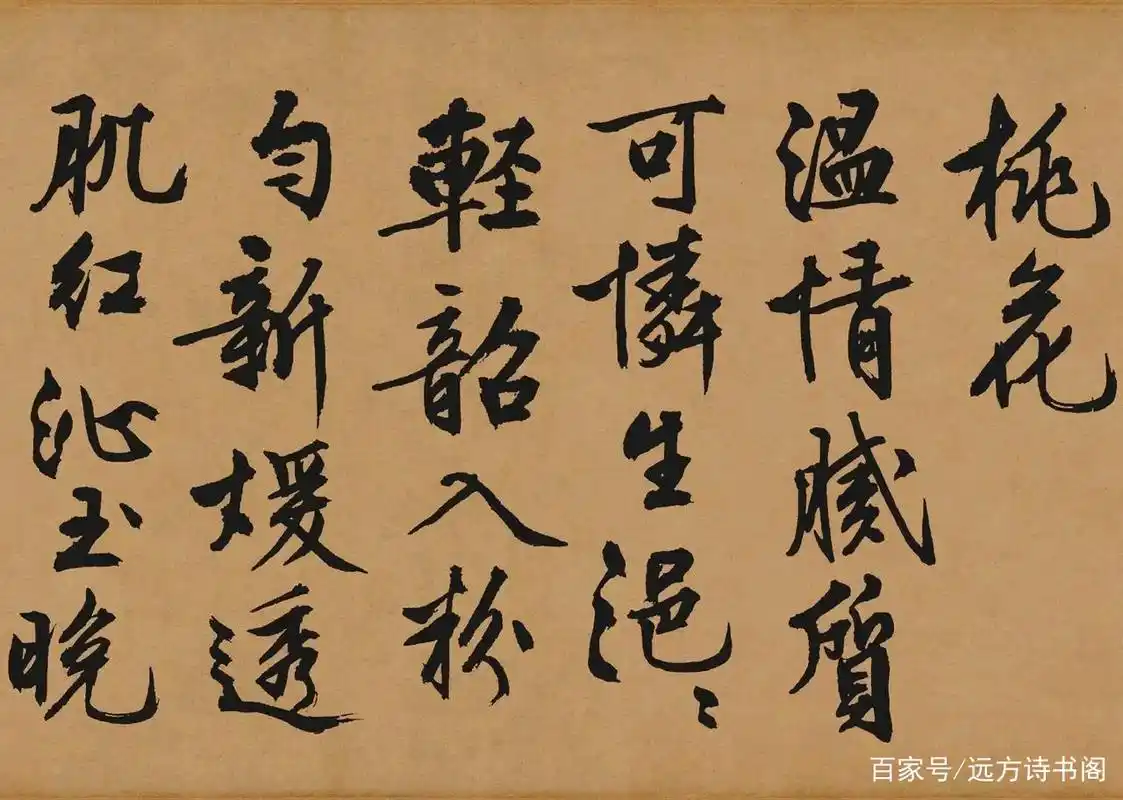 桃花
温情膩質
可憐生浥〻
輕韶入粉
勻新煖透
肌紅沁玉晚
百家号/远方诗书阁